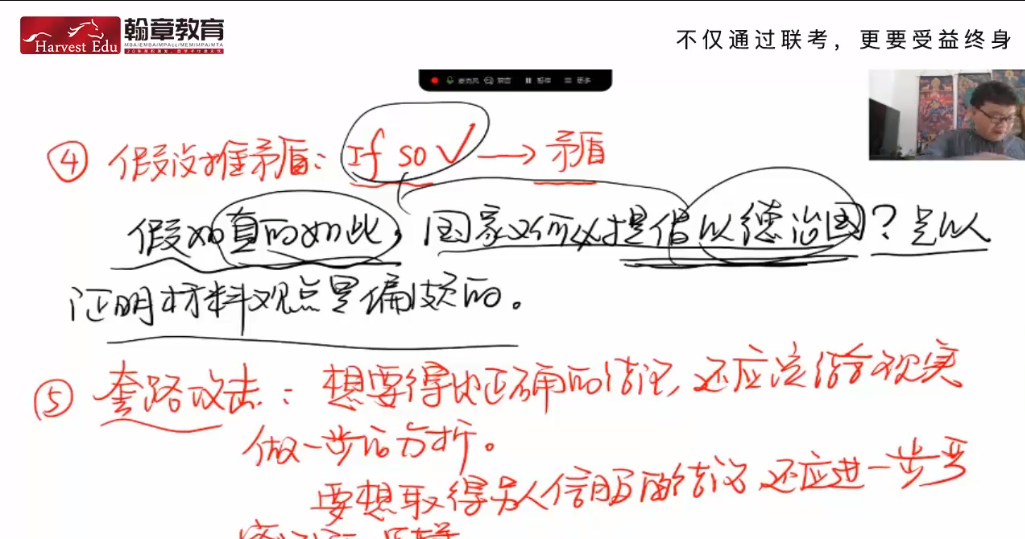 Harvest Edu 翰章教育
MBA/EMBA/MPAcc/MEM/MPA/MTA
不仅通过联考，更要受益终身
④ 假设推矛盾：If so √ → 矛盾
假如真的如此，国家又何必提倡以德治国？足以
证明材料观点是偏颇的。
⑤ 套路攻击：想要得出正确的结论，还应该结合现实
做一步的分析。
要想取得令人信服的结论，还应进一步